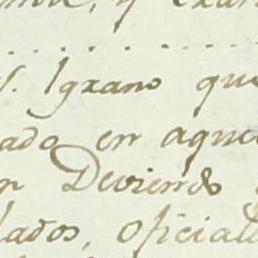 y exan
. Igzano que
ado en aque
n Deviendo
lados, oficiale